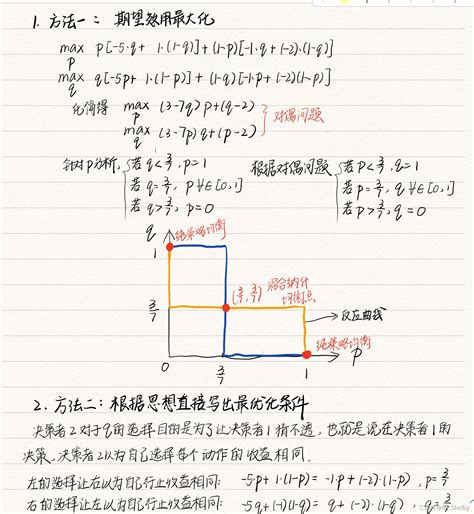 1. 方法一：期望效用最大化
max p[-5·q + 1·(1-q)]+(1-p)[-1·q+(-2)·(1-q)]
p
max q[-5p+ 1·(1-p)]+(1-q)[-1·p+(-2)(1-p)]
q
化简得 max (3-7q)p+(q-2)
p
max (3-7p)q+(p-2)
q
对偶问题
针对p分析, 若q<3/7, p=1
若q=3/7, p∀∈[0,1]
若q>3/7, p=0
根据对偶问题 若p<3/7, q=1
若p=3/7, q∀∈[0,1]
若p>3/7, q=0
q 纯策略均衡
1
3/7
(3/7, 3/7) 混合纳什
均衡点
反应曲线
纯策略均衡
0 3/7 1 p
2. 方法二：根据思想直接写出最优化条件
决策者2对于q的选择目的是为了让决策者1猜不透，也就是说在决策者1的
决策，决策者2以为自己选择每个动作的收益相同．
左的选择让右以为自己行止收益相同： -5p+1·(1-p) = -1p+(-2)·(1-p), p=3/7
右的选择让左以为自己行止收益相同： -5q+(-1)(1-q) = q+(-2)·(1-q), q=3/7